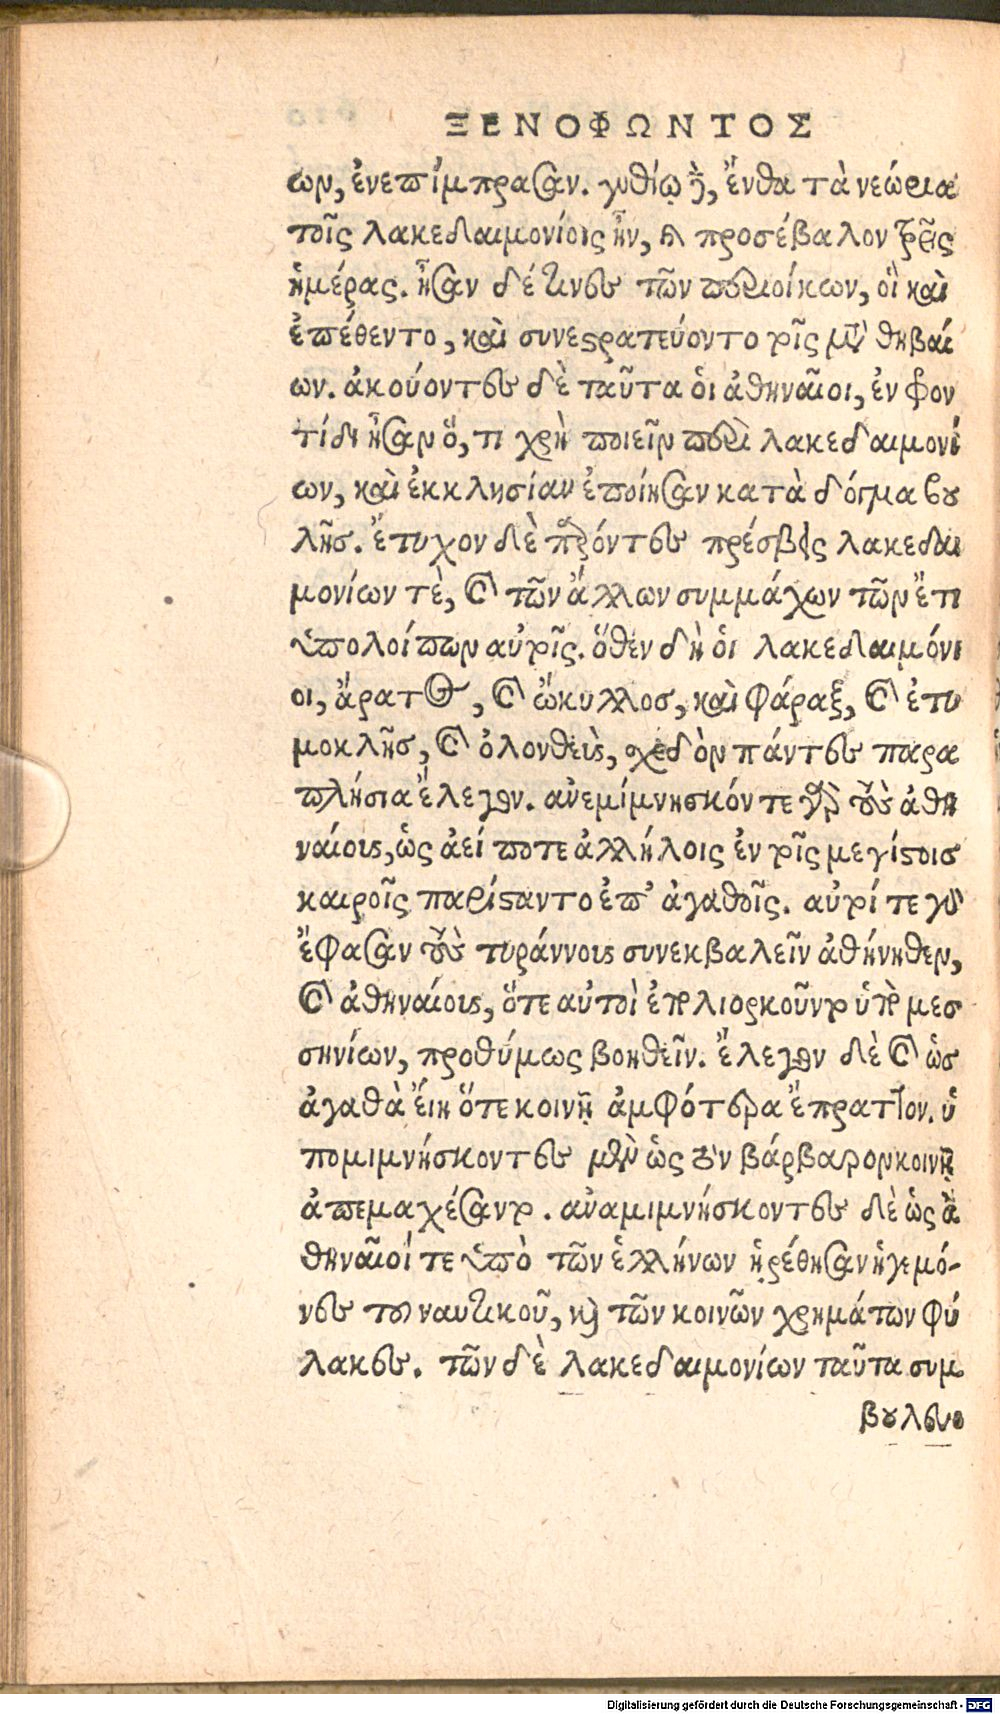 ΞΕΝΟΦΩΝΤΟΣ
ων, ἐνεπίμπρασαν. γυθίῳ δὲ, ἔνθα τὰ νεώρια
τοῖς λακεδαιμονίοις ἦν, καὶ προσέβαλον τρεῖς
ἡμέρας. ἦσαν δέ τινες τῶν περιοίκων, οἳ καὶ
ἐπέθεντο, καὶ συνεστρατεύοντο τοῖς μετὰ θηβαί
ων. ἀκούοντες δὲ ταῦτα ὁι ἀθηναῖοι, ἐν φρον
τίδι ἦσαν ὅ, τι χρὴ ποιεῖν περὶ λακεδαιμονί
ων, καὶ ἐκκλησίαν ἐποίησαν κατὰ δόγμα βου
λῆς. ἔτυχον δὲ παρόντες πρέσβεις λακεδαι
μονίων τὲ, καὶ τῶν ἄλλων συμμάχων τῶν ἔτι
ὑπολοίπων αὐτοῖς. ὅθεν δὴ ὁι λακεδαιμόνι
οι, ἄρατος, καὶ ὤκυλλος, καὶ φάραξ, καὶ ἐτυ
μοκλῆς, καὶ ὀλονθεὺς, σχεδὸν πάντες παρα
πλήσια ἔλεγον. ἀνεμίμνησκόν τε γὰρ τοὺς ἀθη
ναίους, ὡς ἀεί ποτε ἀλλήλοις ἐν τοῖς μεγίστοις
καιροῖς παρίσταντο ἐπ' ἀγαθοῖς. αὐτοί τε γὰρ
ἔφασαν τοὺς τυράννους συνεκβαλεῖν ἀθήνηθεν,
καὶ ἀθηναίους, ὅτε αὐτοὶ ἐπολιορκοῦντο ὑπὸ μεσ
σηνίων, προθύμως βοηθεῖν. ἔλεγον δὲ καὶ ὡς
ἀγαθὰ ἔιη ὅτε κοινῇ ἀμφότεροι ἔπραττον. ὑ
πομιμνήσκοντες μὲν ὡς τὸν βάρβαρον κοινῇ
ἀπεμαχέσαντο. ἀναμιμνήσκοντες δὲ ὡς ἀ
θηναῖοί τε ὑπὸ τῶν ἑλλήνων ᾑρέθησαν ἡγεμό-
νες του ναυτικοῦ, καὶ τῶν κοινῶν χρημάτων φύ
λακες. τῶν δὲ λακεδαιμονίων ταῦτα συμ
βουλευο
Digitalisierung gefördert durch die Deutsche Forschungsgemeinschaft - DFG